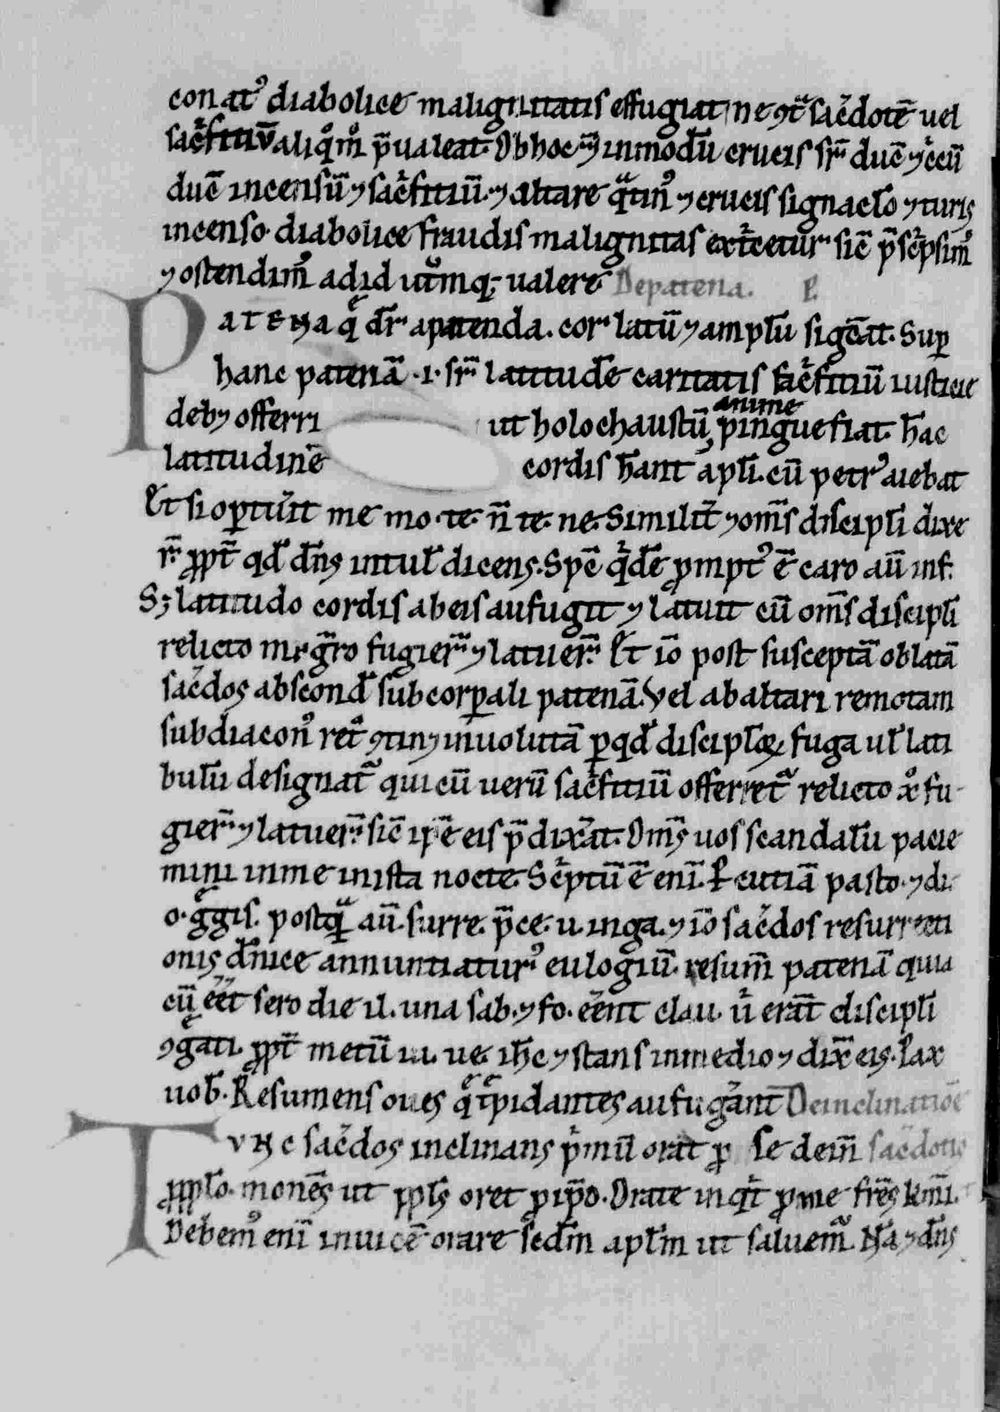 conatꝰ diabolice malignitatis effugiat, ne ꝯt̄ sac̄dotē uel
sac̄fitiū aliq̊m̊ p̄ualeat. Ob hoc inmodū crucis sr̄ ducē
ducē incensū ⁊ sac̄fitiū. ⁊ altare q̄tin ⁊ crucis signac̄lo ⁊ turis
incenso diabolice fraudis malignitas ext̄cetur sic̄ p̄sc̄psim̉
⁊ ostendim̉ ad id ut̄mq; ualere De patena. P.
PATENA q̄ dr̄ a patenda. cor latū ⁊ amplū sigc̄at. Sup̱
hanc patenā .i. sr̄ latitudē caritatis sac̄fitiū iusticie
deb⁊ offerri ut holochaustū anime pingue fiat. h̄ac
latitudinē cordis h̄ant apl̄i. cū petrꝰ aiebat
Et si oportūit me mo. te. n̄ te. ne. Similit̄ ⁊ om̄s discipl̄i dixe
r̄ ꝓpt̄ qd̄ dn̄s intul̄ dicens. Spc̄ q̄dē prompt' ē caro aū inf.
S; latitudo cordis ab eis aufugit ⁊ latuit cū om̄s discipl̄i
relicto fugier̄ ⁊ latuer̄. Et iō post susceptā oblatā
sac̄dos abscond̄ sub corꝑali patenā. Vel ab altari remotam
subdiaconꝰ ret̄ inuolutā ꝑ qd̄ discipl̄oꝝ fuga ul̄ lati
bulū designat̄ qui cū uerū sac̄fitiū offerret̄ relicto x̊ fu
gier̄ ⁊ latuer̄. sic̄ ip̄e eis p̄dix̄at. Om̄s uos scandalū pacie
mini in me in ista nocte. Sc̄ptū ē eni. P̱cutiā pasto. ⁊ di.
o. g̱gis. postq̄ aū. surre. p̄ce. u. in ga. ⁊ iō sac̄dos resurrecti
onis dn̄ice annuntiaturꝰ eulogiū. resum̄ patenā quia
cū eēt sero die il. una sab. ⁊ fo. eēnt clau. u̇ erāt discipl̄i
ꝯgati. ꝓpt̄ metū iu. ue. ih̄c ⁊ stans in medio ⁊ dix̄ eis. Pax
uob̄. Resumens oues q̄ t̄pidantes aufugāant De inclinatiōe
TVNC sac̄dos inclinans p̄mū orat ꝓ se. dein̄ sac̄dotis
ꝓ ppl̄o. monēs ut ppl̄s oret ꝓ ip̄o. Orate inq̄t ꝓ me frēs km̄i.
Debemꝰ eni inuicē orare sc̄dm apl̄m ut saluem̄. Na ⁊ dn̄s